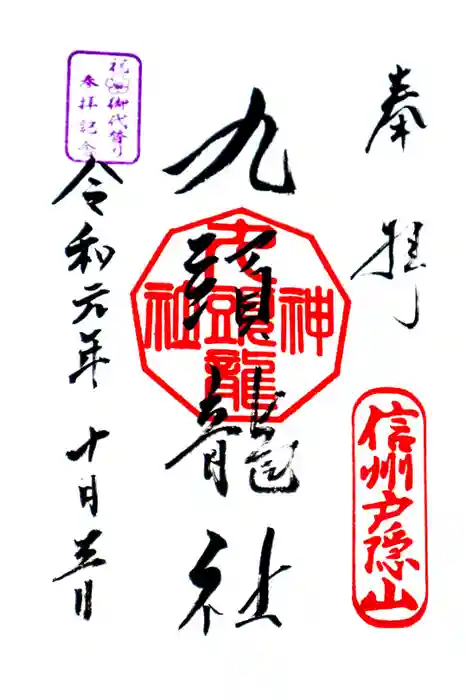 奉拝
信州戸隠山
九頭龍社
神
九頭龍
祝 御代替り
奉拝記念
令和元年 十月 日